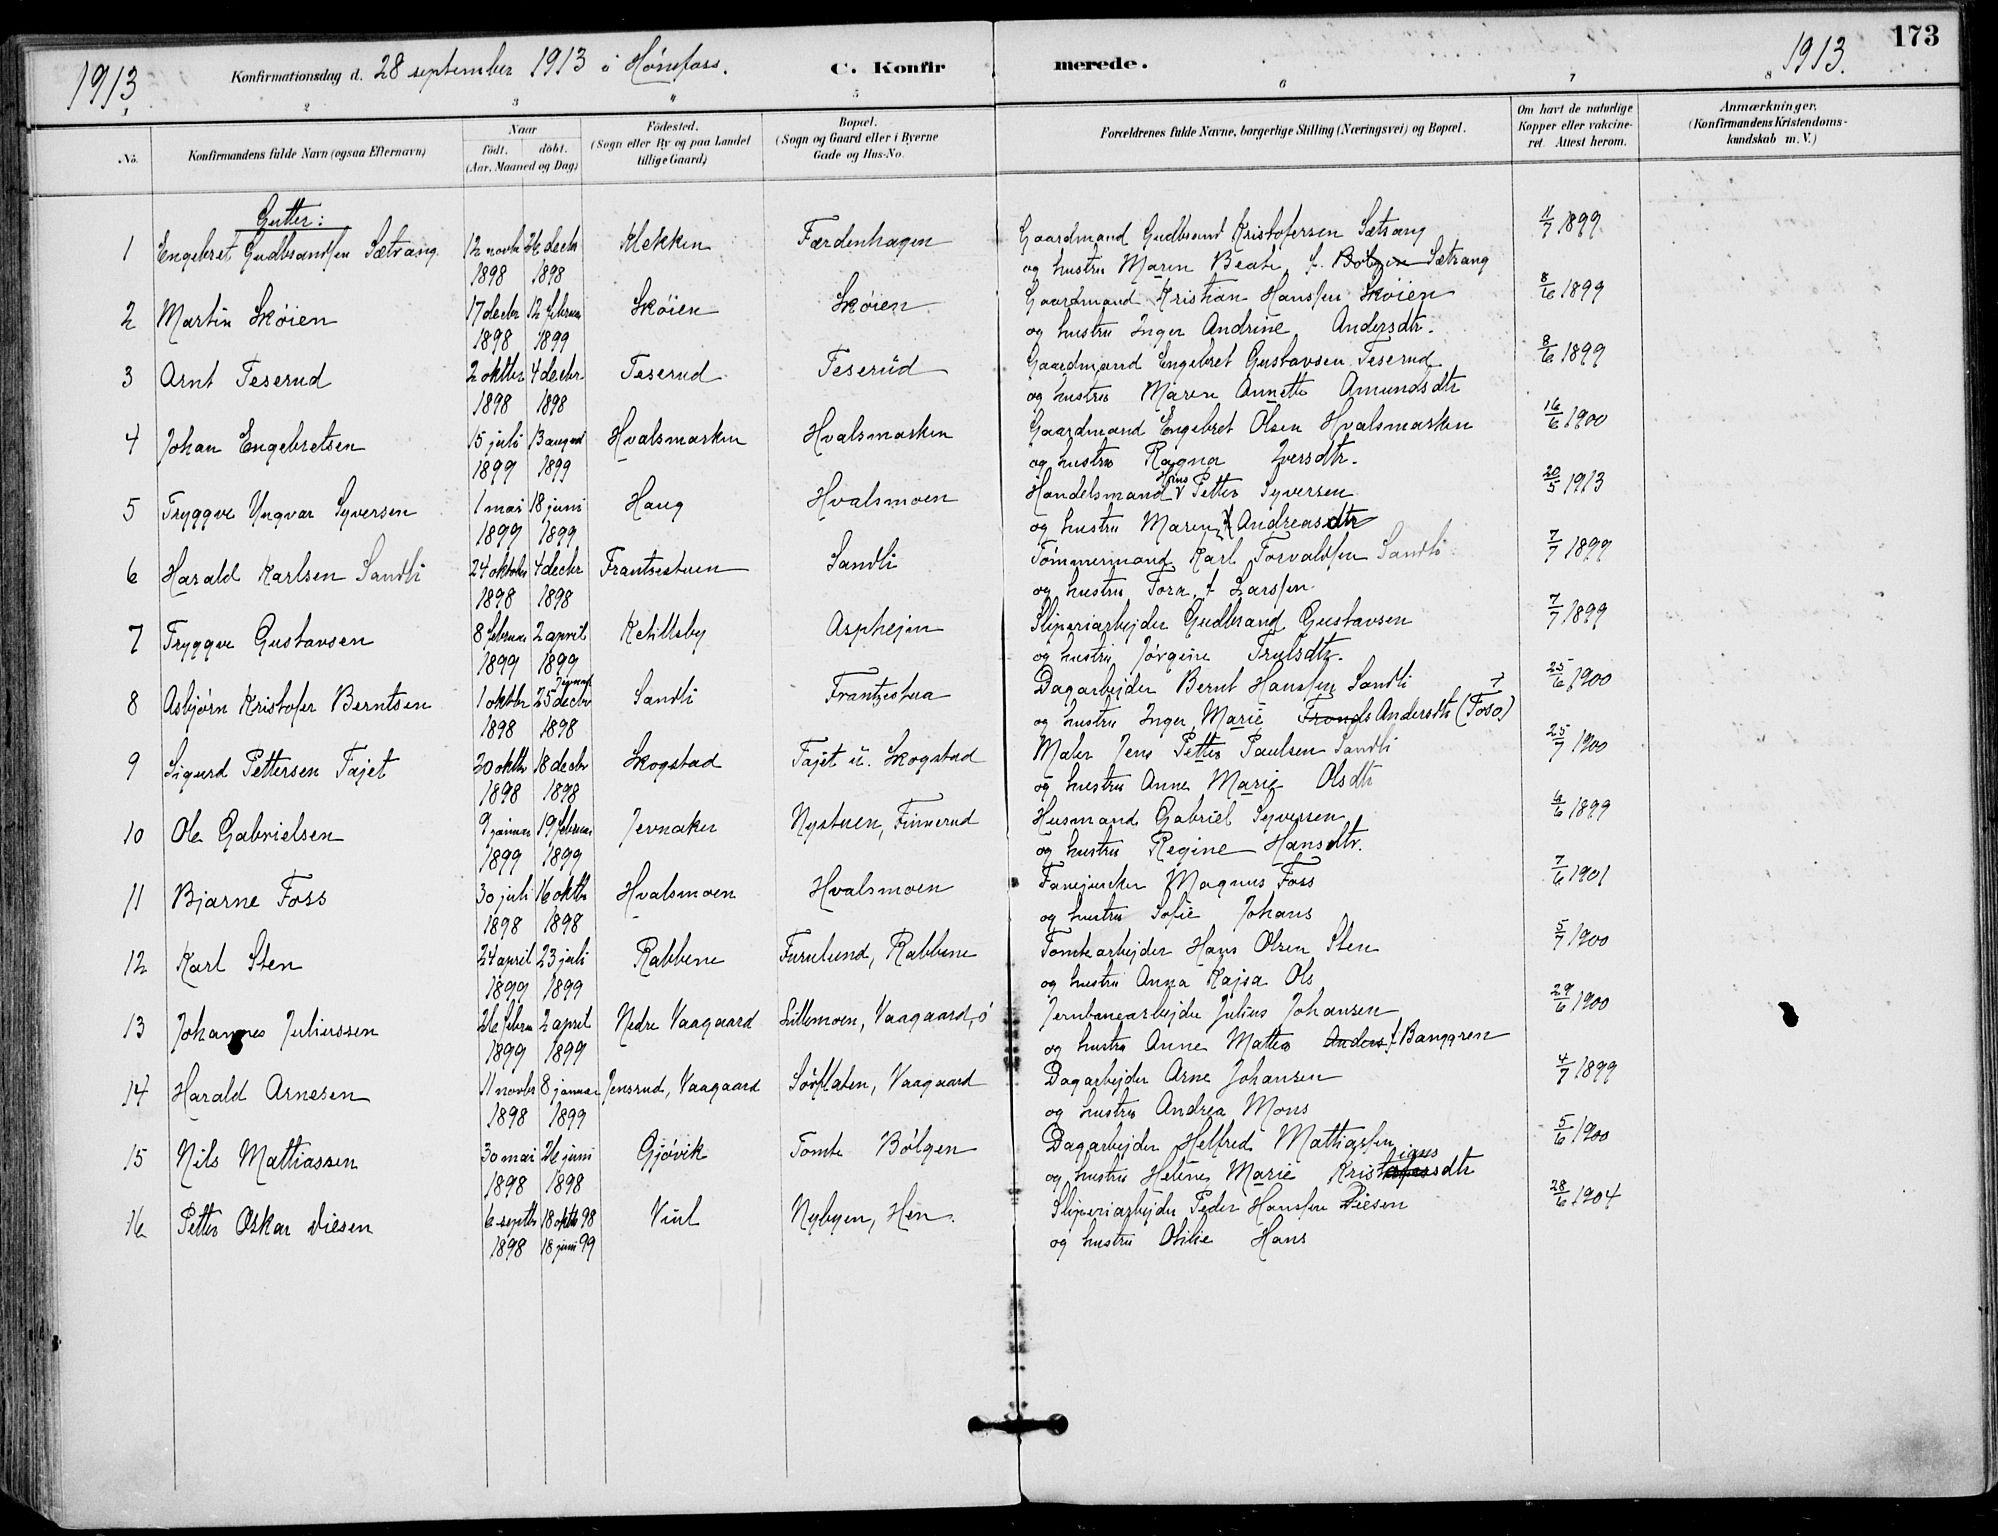 1913
Konfirmationsdag d. 28 september 1913 i Hønefoss.
C. Konfirmerede.
1913.
173
1 2 3 4 5 6 7 8
No. Konfirmandens fulde Navn (ogsaa Efternavn) Naar født. døbt. (Aar, Maaned og Dag) Fødested. (Sogn eller By og paa Landet tillige Gaard) Bopæl. (Sogn og Gaard eller i Byerne Gade og Hus-No. Forældrenes fulde Navne, borgerlige Stilling (Næringsvei) og Bopæl. Om havt de naturlige Kopper eller vakcineret. Attest herom. Anmærkninger. (Konfirmandens Kristendomskundskab m. V.)
Gutter:
1 Engebret Gudbrandsen Sætrang 12 novbr 26 decbr Klekken Færdenhagen Gaardmand Gudbrand Kristofersen Sætrang 11/7 1899
1898 1898 og hustru Maren Beate f. Bølgen Sætrang
2 Martin Skøien 17 decbr 12 februar Skøien Skøien Gaardmand Kristian Hanssen Skøien 8/6 1899
1898 1899 og hustru Inger Andrine Andersdtr.
3 Arnt Feserud 2 oktbr 4 decbr. Feserud Feserud Gaardmand Engebret Gustavsen Feserud 8/6 1899
1898 1898 og hustru Maren Annette Amundsdtr
4 Johan Engebretsen 15 juli 13 august Hvalsmarken Hvalsmarken Gaardmand Engebret Olsen Hvalsmarken 16/6 1900
1899 1899 og hustru Ragna Iversdtr.
5 Tryggve Yngvar Syversen 1 mai 18 juni Haug Hvalsmoen Handelsmand Hans Petter Syversen 20/5 1913
1899 1899 og hustru Maren Andreasdtr
6 Harald Karlsen Sandli 24 oktober 4 decbr Frantsestuen Sandli Tømmermand Karl Torvaldsen Sandli 7/7 1899
1898 1898 og hustru Tora, f. Larssen
7 Tryggve Gustavsen 8 februar 2 april Ketillsby Asphejm Sliperiarbejder Gudbrand Gustavsen 7/7 1899
1899 1899 og hustru Jørgine Trulsdtr.
8 Asbjørn Kristofer Berntsen 1 oktbr 25 decbr Sandli Frantzestua Dagarbejder Bernt Hanssen Sandli 25/6 1900
1898 1898 og hustru Inger Marie Tronds Andersdtr (Foso)
9 Sigurd Pettersen Fajet 20 oktbr 18 decbr Skogstad Fajet u. Skogstad Maler Jens Petter Paulsen Sandli 25/7 1900
1898 1898 og hustru Anne Marie Olsdtr
10 Ole Gabrielsen 9 januar 19 februar Jevnaker Nystuen, Finnerud Husmand Gabriel Syversen 6/6 1899
1899 1899 og hustru Regine Hansdtr.
11 Bjarne Foss 30 juli 16 oktbr Hvalsmoen Hvalsmoen Fanejunker Magnus Foss 7/6 1901
1898 1898 og hustru Sofie Johans
12 Karl Sten 24 april 23 juli Rabbene Furulund, Rabbene Tomtearbejder Hans Olsen Sten 5/7 1900
1899 1899 og hustru Anna Kajsa Ols
13 Johannes Juliussen 26 februar 2 april Nedre Vaagaard Lillemoen, Vaagaard, ø Jernbanearbejder Julius Johansen 29/6 1900
1899 1899 og hustru Anne Mattea Anders f. Banggren
14 Harald Arnesen 11 novbr 8 januar Jensrud, Vaagaard Sørflaten, Vaagaard Dagarbejder Arne Johansen 4/7 1899
1898 1899 og hustru Andrea Mons
15 Nils Mattiassen 30 mai 26 juni Gjøvik Tomte Bølgen Dagarbejder Helfred Mattiassen 5/6 1900
1898 1898 og hustru Helene Marie Kristiansdtr
16 Petter Oskar Diesen 6 septbr 18 oktbr 98 Viul Nybyen, Hen. Sliperiarbejder Peder Hanssen Diesen 28/6 1904
1898 18 juni 99 og hustru Otilie Hans